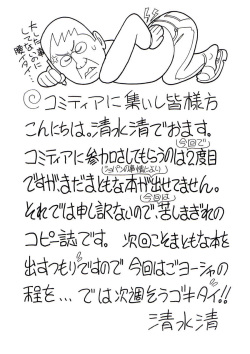 大した事
してないのに
腰イタイ…
コミティアに集いし皆様方
こんにちは。清水清でおます。
今回で
コミティアに参加させてもらうのは2度目
ですが、まだまともな本が出せてません。
今回は
それでは申し訳ないので、苦しまぎれの
コピー誌です。次回こそまともな本を
出すつもりですので今回はごヨーシャの
程を…では次週そうゴキタイ!!
清水清